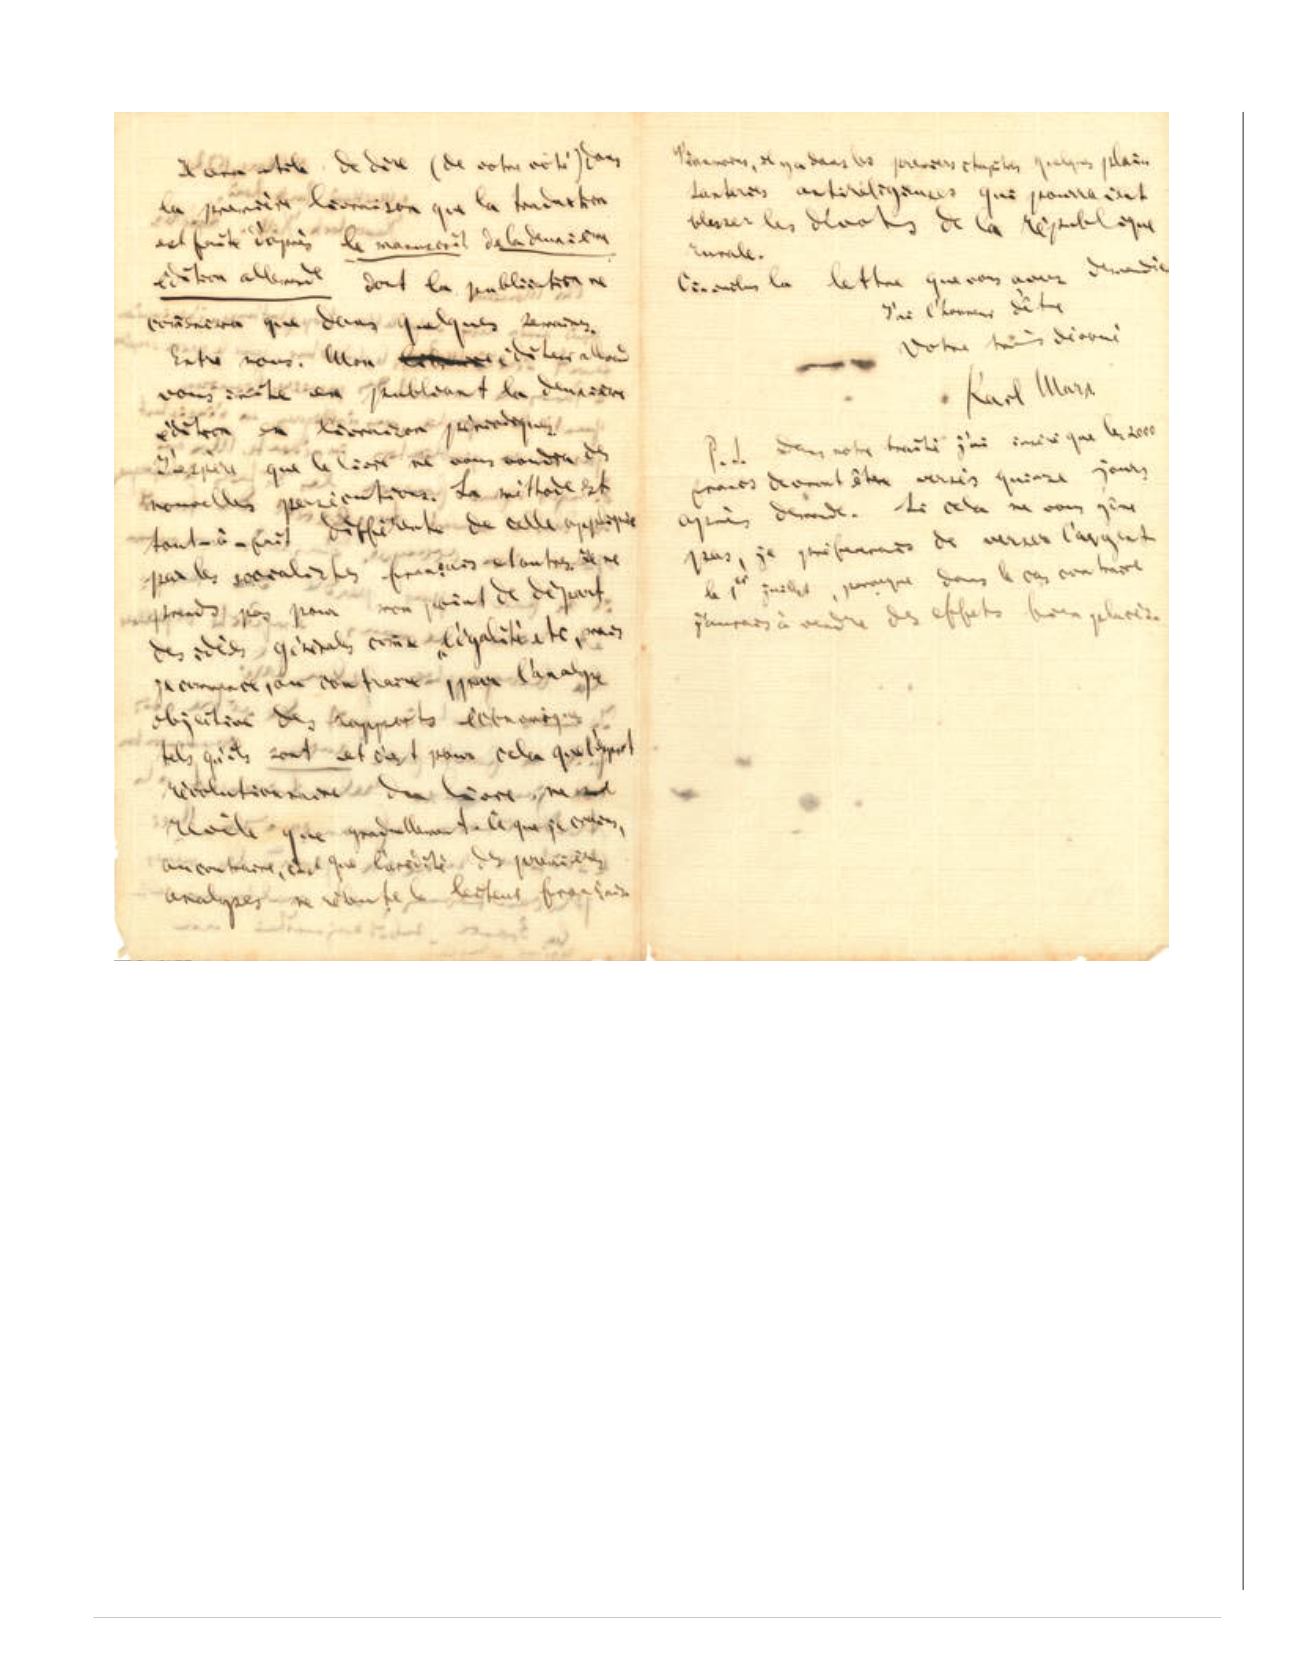 Il sera utile de dire (de votre côté) dans
la première livraison que la traduction
est faite d'après le manuscrit de la deuxième
édition allemande dont la publication ne
commencera que dans quelques semaines.
Entre nous. Mon éditeur allemand
vous imite en publiant la deuxième
édition en livraison périodiques.
J'espère que le livre ne vous vaudra des
nouvelles persécutions. La méthode est
tout-à-fait différente de celle appliquée
par les socialistes français et autres. Je ne
prends pas pour mon point de départ
des idées générales comme l'égalité etc, mais
je commence, au contraire, par l'analyse
objective des rapports économiques
tels qu'ils sont et c'est pour cela que l'esprit
révolutionnaire du livre ne se
révèle que graduellement. Ce que je crains,
au contraire, c'est que l'aridité des premières
analyses ne rebute le lecteur français
il y a dans les premiers chapitres quelques plaisan
tanteries antireligieuses qui pourraient
blesser les dévotes de la République
rurale.
la lettre que vous avez demandée
J'ai l'honneur d'être
Votre très dévoué
Karl Marx
P.S. dans notre traité j'ai que les 2000
francs devront être versés quinze jours
après demande. Si cela ne vous gêne
pas, je préférerais de verser l'argent
le 1er juillet, parceque dans le cas contraire
j'aurais à vendre des effets bien placés.